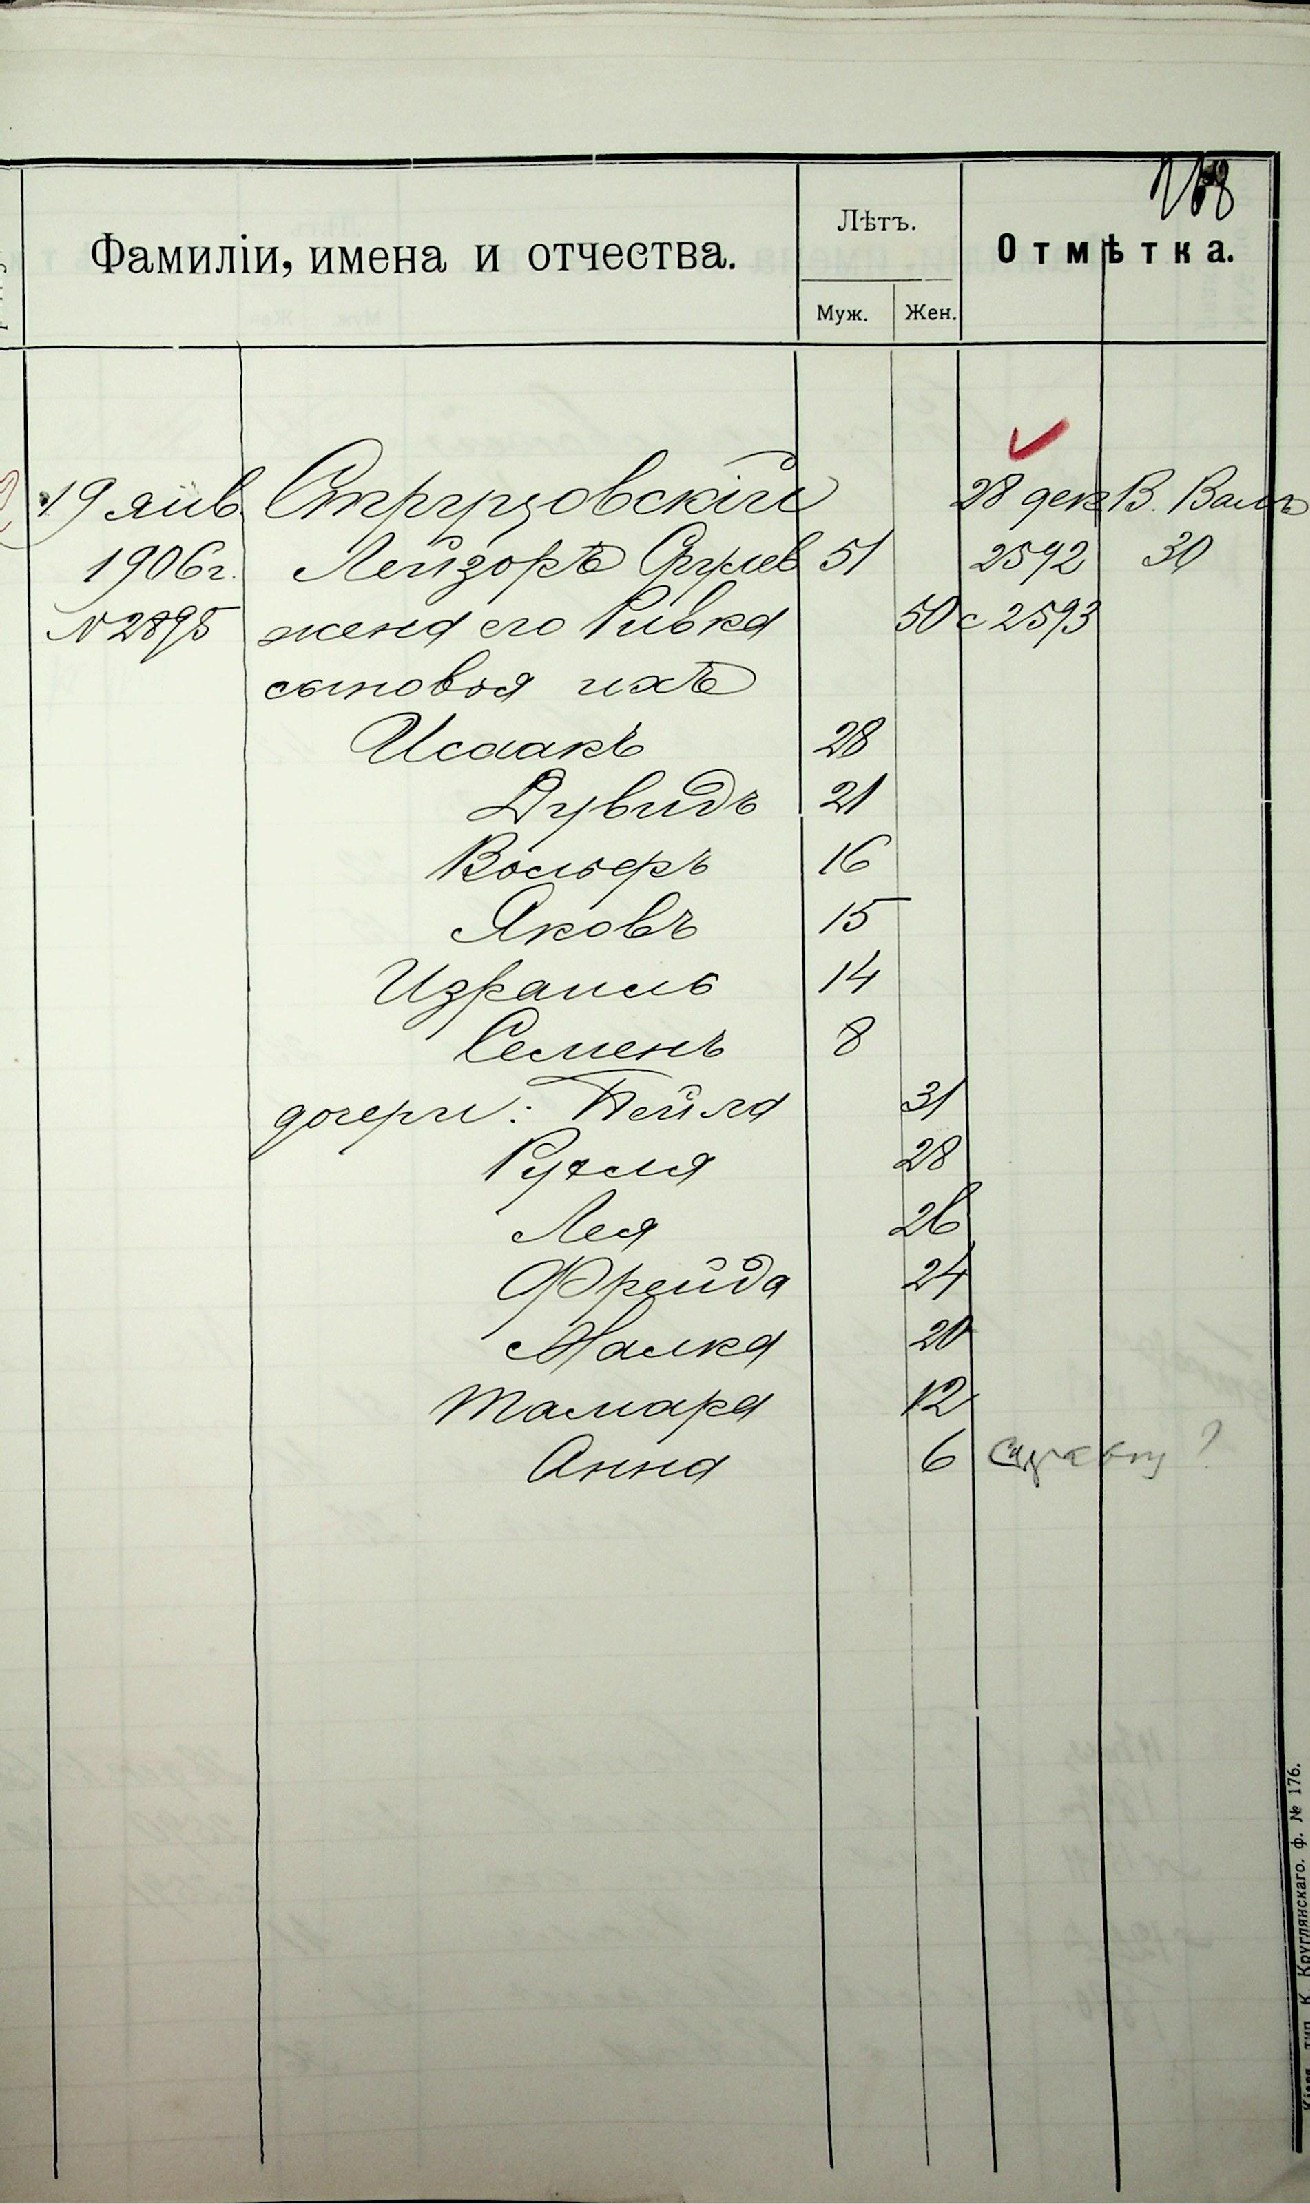 268
Фамиліи, имена и отчества.
Лѣтъ.
Отмѣтка.
Муж. Жен.
19 янв. Струцовскій 28 дек В. Вал
1906г. Лейзоръ Срулев 51 2592 30
№ 2895 жена его Ривка 50 с 2593
сыновья ихъ
Исаакъ 28
Дувидъ 21
Вольфъ 16
Яковъ 15
Израиль 14
Семенъ 8
дочери: Бейла 31
Рухля 28
Лея 26
Фрейда 24
Малка 20
Тамара 12
Анна 6 справку?
тип. К. Круглянскаго. ф. № 176.